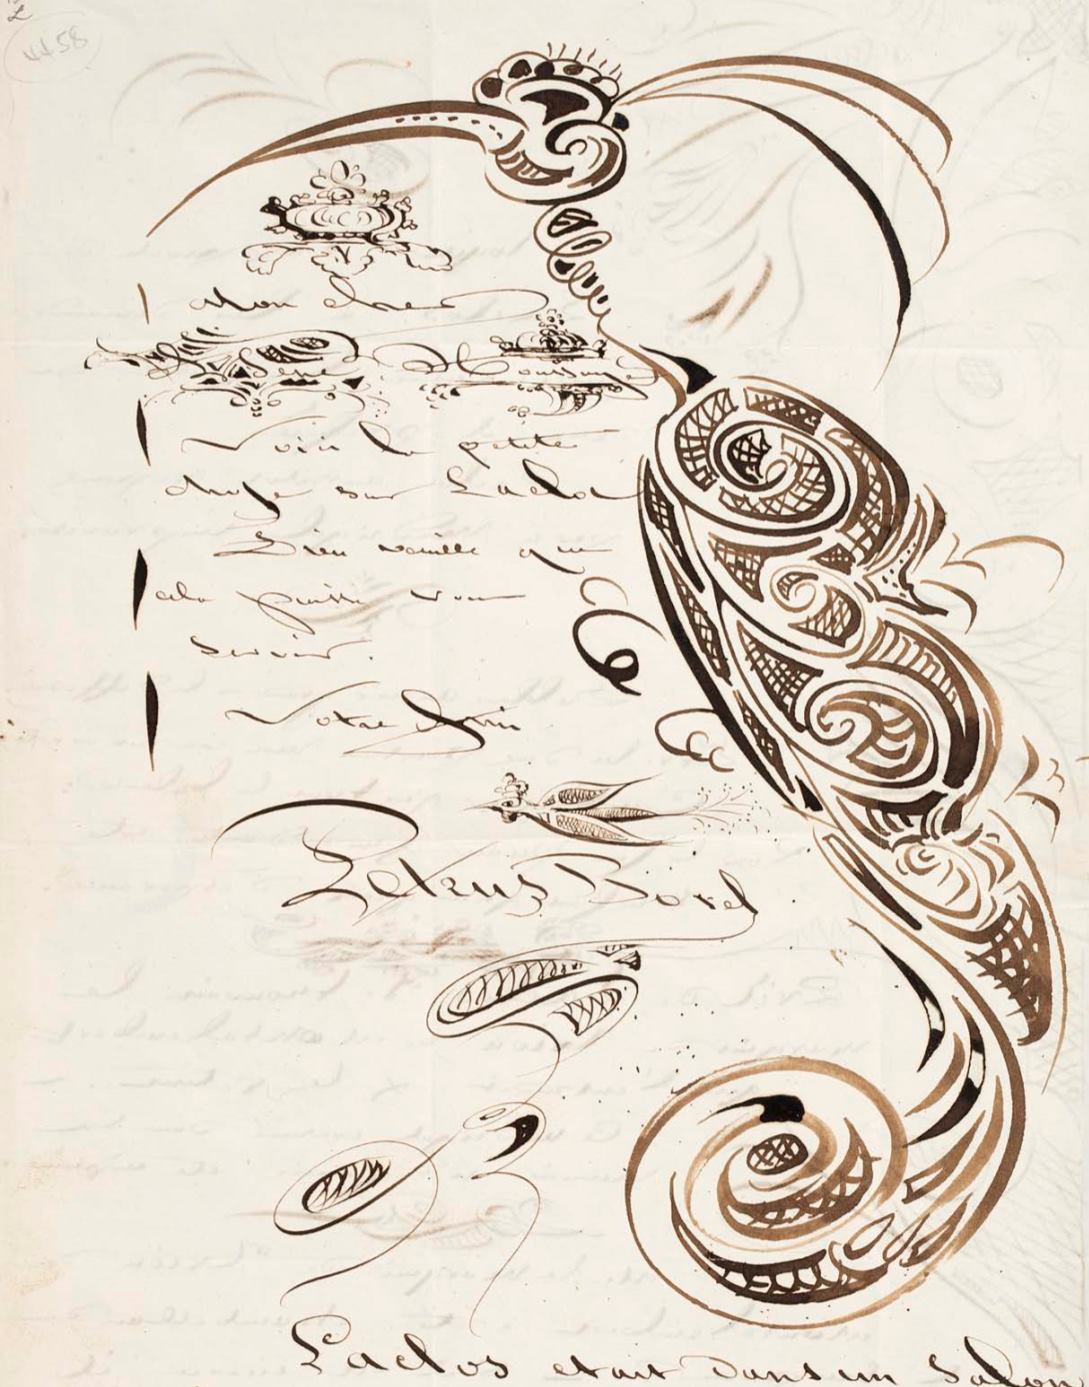 Mon cher
Arsène Houssaye
Voici la petite
chose sur Laclos
Dieu veuille que
cela puisse vous
servir.
Votre Ami
Petrus Borel
Laclos etait dans un Salon